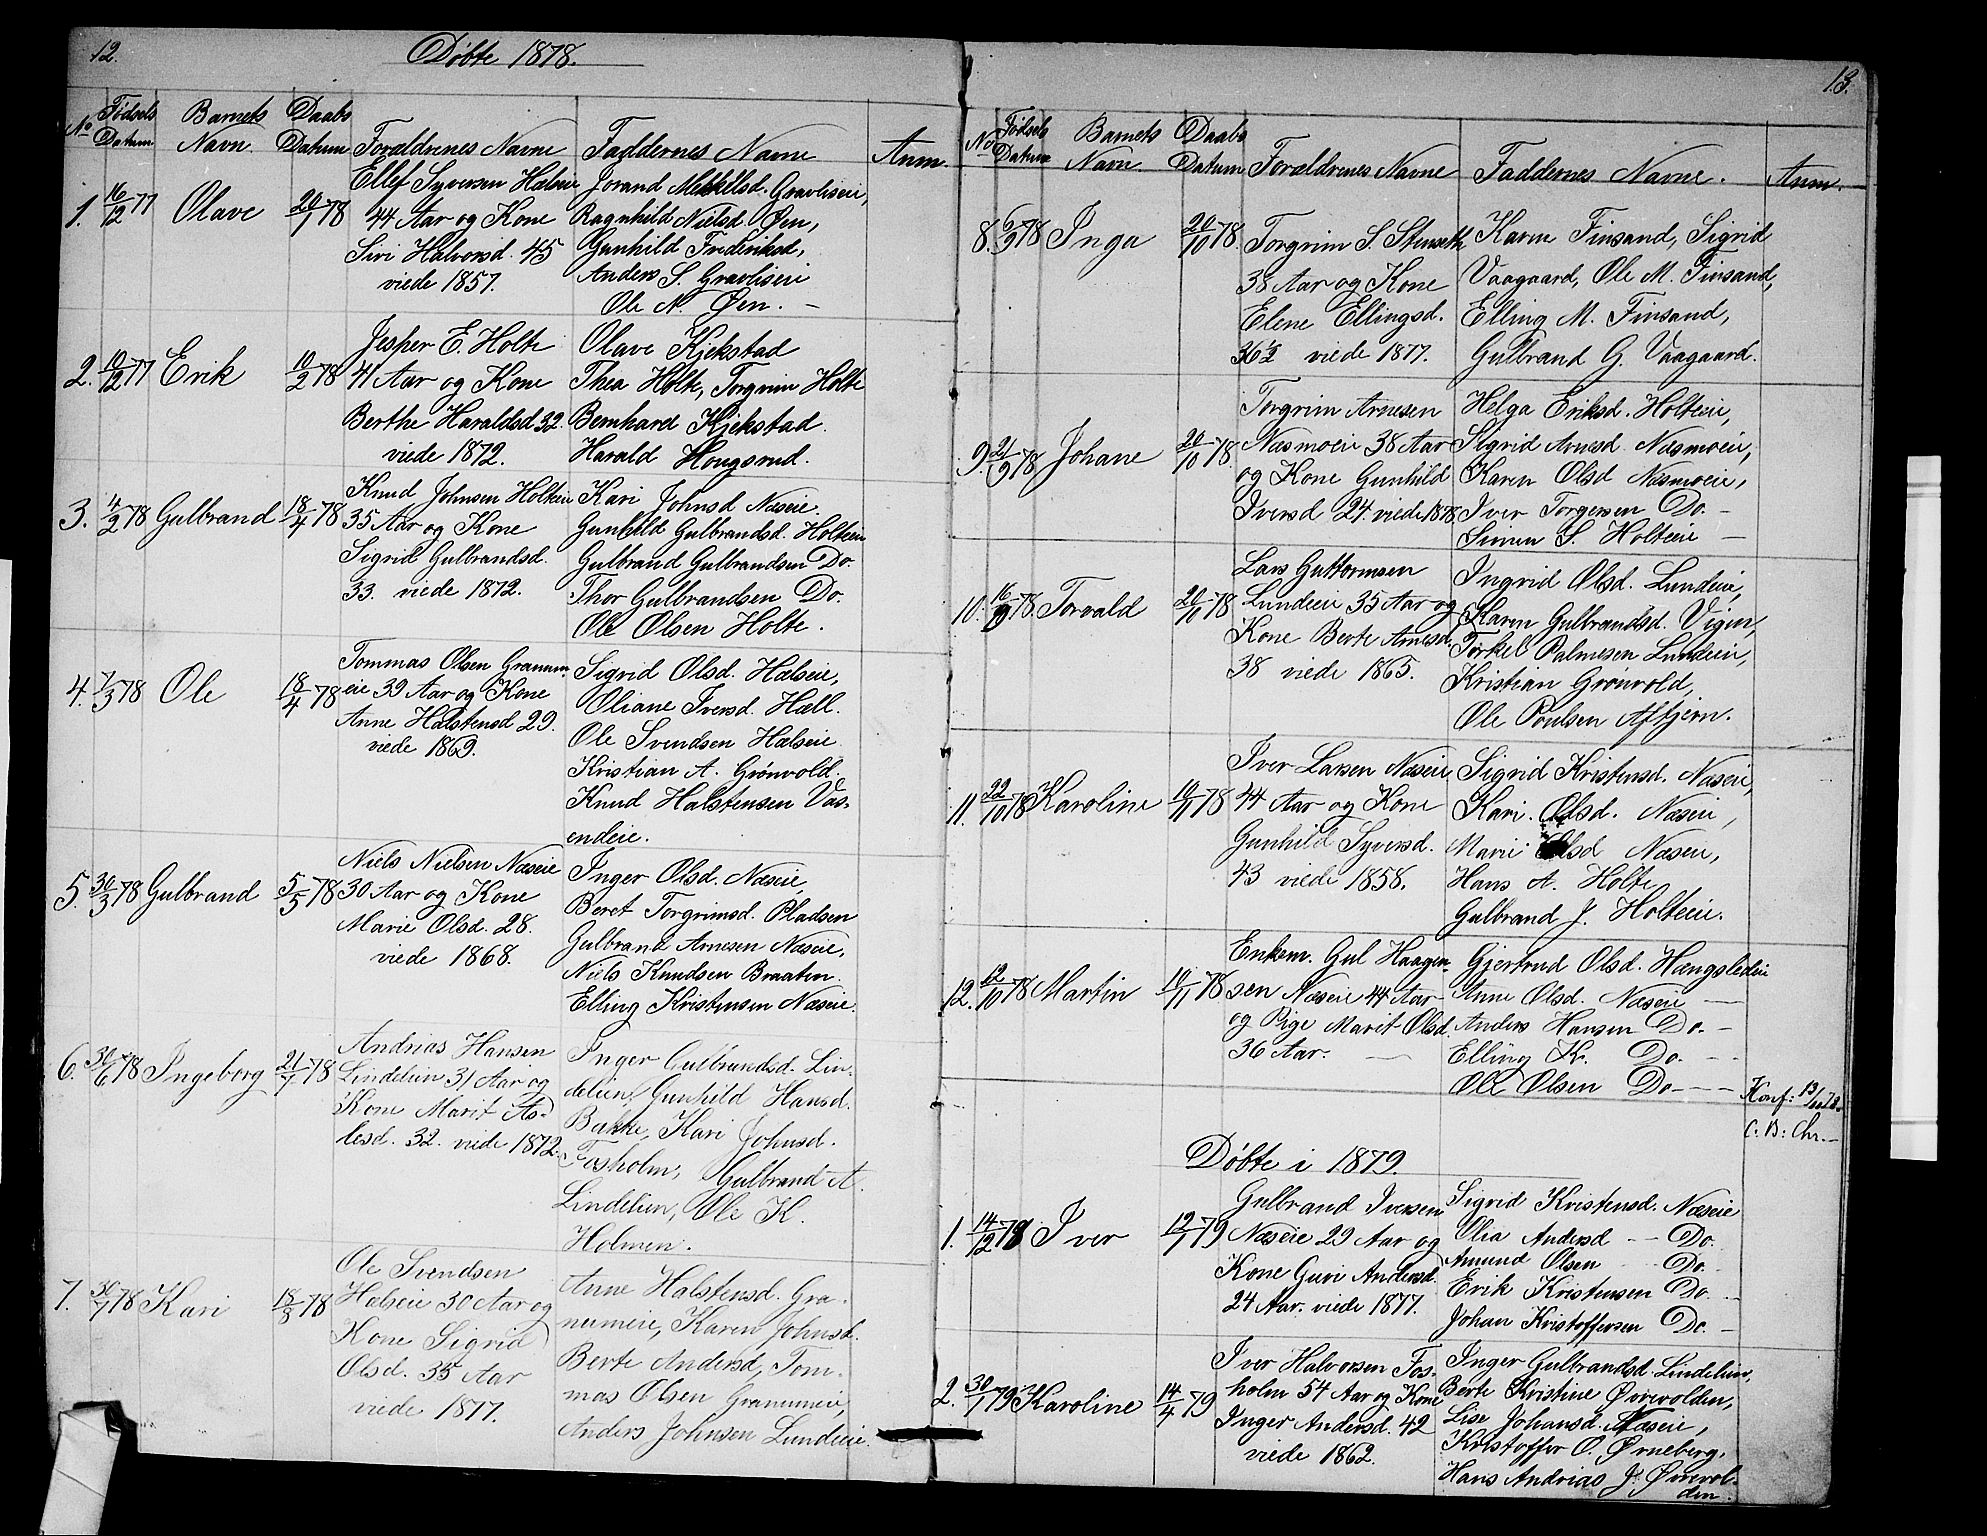 12.
Döbte 1878.
No Födsels Datum Barnets Navn. Daabs Datum Forældrenes Navne Faddernes Navne Anm.
1. 16/12 77 Olave 20/1 78
Ellef Syversen Hælseie
44 Aar og Kone
Siri Halvorsd. 45
viede 1857.
Jorand Mekkelsd. Gravliseie,
Ragnhild Nielsd. Øen,
Gunhild Frederiksd,
Anders S. Gravliseie
Ole N. Øen. —
2. 10/12 77 Erik 10/2 78
Jesper E. Holte
41 Aar og Kone
Berthe Haraldsd 32.
viede 1872.
Olave Kjekstad
Thea Holte, Torgrim Holte
Bernhard Kjekstad.
Harald Hougsrud.
3. 4/2 78 Gulbrand 18/4 78
Knud Johnsen Holteie
35 Aar og Kone
Sigrid Gulbrandsd.
33. viede 1872.
Kari Johnsd Næseie.
Gunhild Gulbrandsd. Holteie
Gulbrand Gulbrandsen Do.
Thor Gulbrandsen Do.
Ole Olsen Holte.
4. 7/3 78 Ole 18/4 78
Tommas Olsen Granum-
eie 39 Aar og Kone
Anne Halstensd 29.
viede 1869.
Sigrid Olsd. Hælseie,
Oliane Iversd. Hæll.
Ole Svendsen Hælseie.
Kristian A. Grönvold.
Knud Halstensen Vas-
endeie.
5. 30/3 78 Gulbrand 5/5 78
Niels Nielsen Næseie
30 Aar og Kone
Marie Olsd. 28.
viede 1868.
Inger Olsd. Næseie,
Beret Torgrimsd. Pladsen
Gulbrand Arnesen Næseie,
Niels Knudsen Braaten.
Elling Kristensen Næseie.
6. 30/6 78 Ingeborg 21/7 78
Andrias Hansen
Lindelien 31 Aar og
Kone Marit As-
lesd. 32. viede 1872.
Inger Gulbrandsd. Lin-
delien, Gunhild Hansd.
Bakke, Kari Johnsd.
Fosholm, Gulbrand A.
Lindelien, Ole K.
Holmen.
7. 30/7 78 Kari 18/8 78
Ole Svendsen
Hælseie 30 Aar og
Kone Sigrid
Olsd. 35 Aar
viede 1877.
Anne Halstensd. Gra-
numeie, Karen Johnsd.
Berte Andersd, Tom-
mas Olsen Granumeie,
Anders Johnsen Lundeie.
13.
No Födsels Datum Barnets Navn. Daabs Datum Forældrenes Navne Faddernes Navne. Anm.
8. 6/9 78 Inga 20/10 78.
Torgrim S. Stenseth
38 Aar og Kone
Elene Ellingsd.
36 1/2 viede 1877.
Karen Finsand, Sigrid
Vaagaard, Ole M. Finsand,
Elling M. Finsand,
Gulbrand G. Vaagaard.
9. 21/9 78 Johane 20/10 78.
Torgrim Arnesen
Næsmoeie 38 Aar
og Kone Gunhild
Iversd 24. viede 1878.
Helga Eriksd. Holteie,
Sigrid Arnesd. Næsmoeie,
Karen Olsd Næsmoeie,
Iver Torgersen Do. —
Simen S. Holteie —
10. 16/9 78. Torvald 20/10 78
Lars Guttormsen
Lundeie 35 Aar og
Kone Berte Arnesd.
38 viede 1865.
Ingrid Olsd. Lundeie,
Karen Gulbrandsd. Vigen,
Torkel Palmesen Lundeie,
Kristian Grönvold,
Ole Poulsen Afkjern.
11. 22/10 78 Karoline 10/11 78
Iver Larsen Næseie
44 Aar og Kone
Gunhild Syversd.
43 viede 1858.
Sigrid Kristensd. Næseie,
Kari. Olsd. Næseie,
Marie Olsd Næseie,
Hans A. Holte
Gulbrand J. Holteeie.
12. 12/10 78 Martin 10/11 78
Enkem. Gul Haagen-
sen Næseie 44 Aar
og Pige Marit Olsd.
36 Aar. —
Gjertrud Olsd. Hængsledeie
Anne Olsd. Næseie —
Anders Hansen Do. —
Elling Kr. Do. —
Ole Olsen Do —
Konf:
C. B: Chr. —
Döbte i 1879.
1. 14/12 78 Iver 12/1 79
Gulbrand Iversen
Næseie 29 Aar og
Kone Guri Andersd.
24 Aar. viede 1877.
Sigrid Kristensd. Næseie
Olia Andersd — Do.
Amund Olsen Do.
Erik Kristensen Do. —
Johan Kristoffersen Do. —
2. 30/1 79 Karoline 14/4 79
Iver Halvorsen Fos-
holm 54 Aar og Kone
Inger Andersd. 42
viede 1862.
Inger Gulbrandsd. Lindelien,
Berte Kristine Øvrevolden,
Lise Johansd. Næseie,
Kristoffer O. Ørneberg,
Hans Andrias J. Øvrevol-
den.